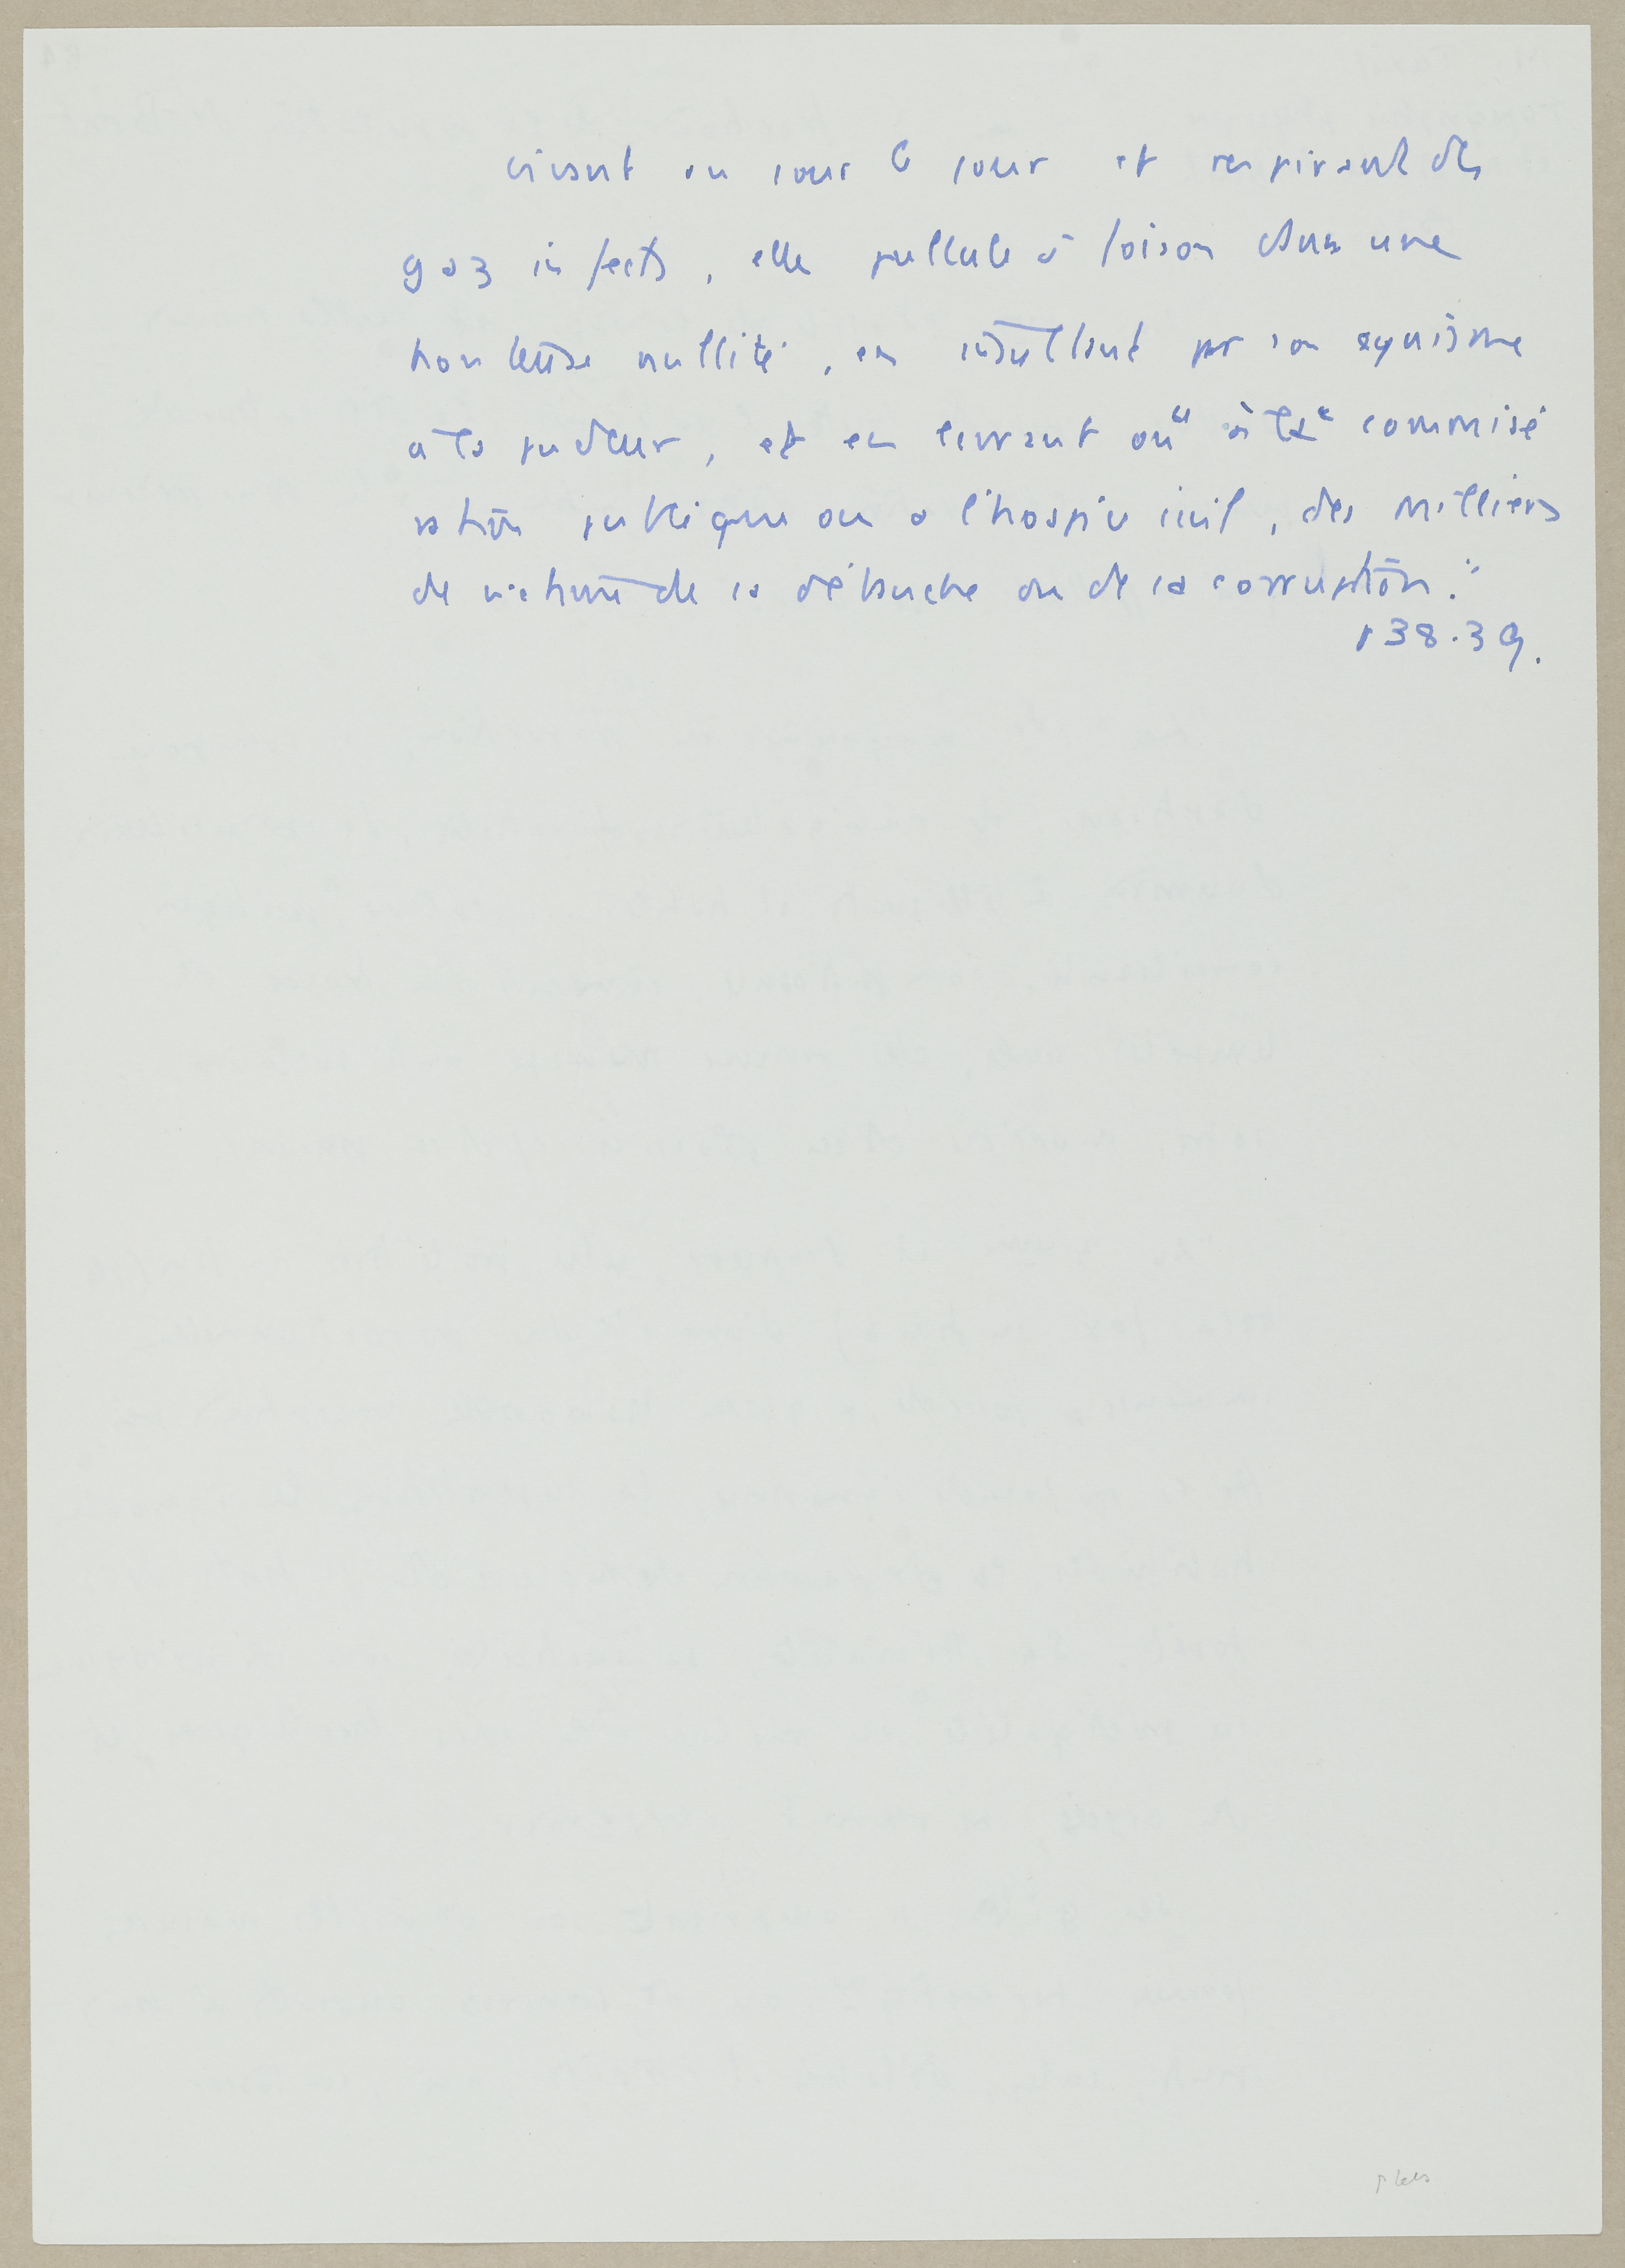 vivant au jour le jour et respirant des
gaz infects, elle pullule à foison dans une
honteuse nullité, en insultant par son cynisme
à la pudeur, et en livrant ou "à la" commisé
ration publique ou à l'hospice civil, des milliers
de victimes de la débauche ou de la corruption."
p 38.39.